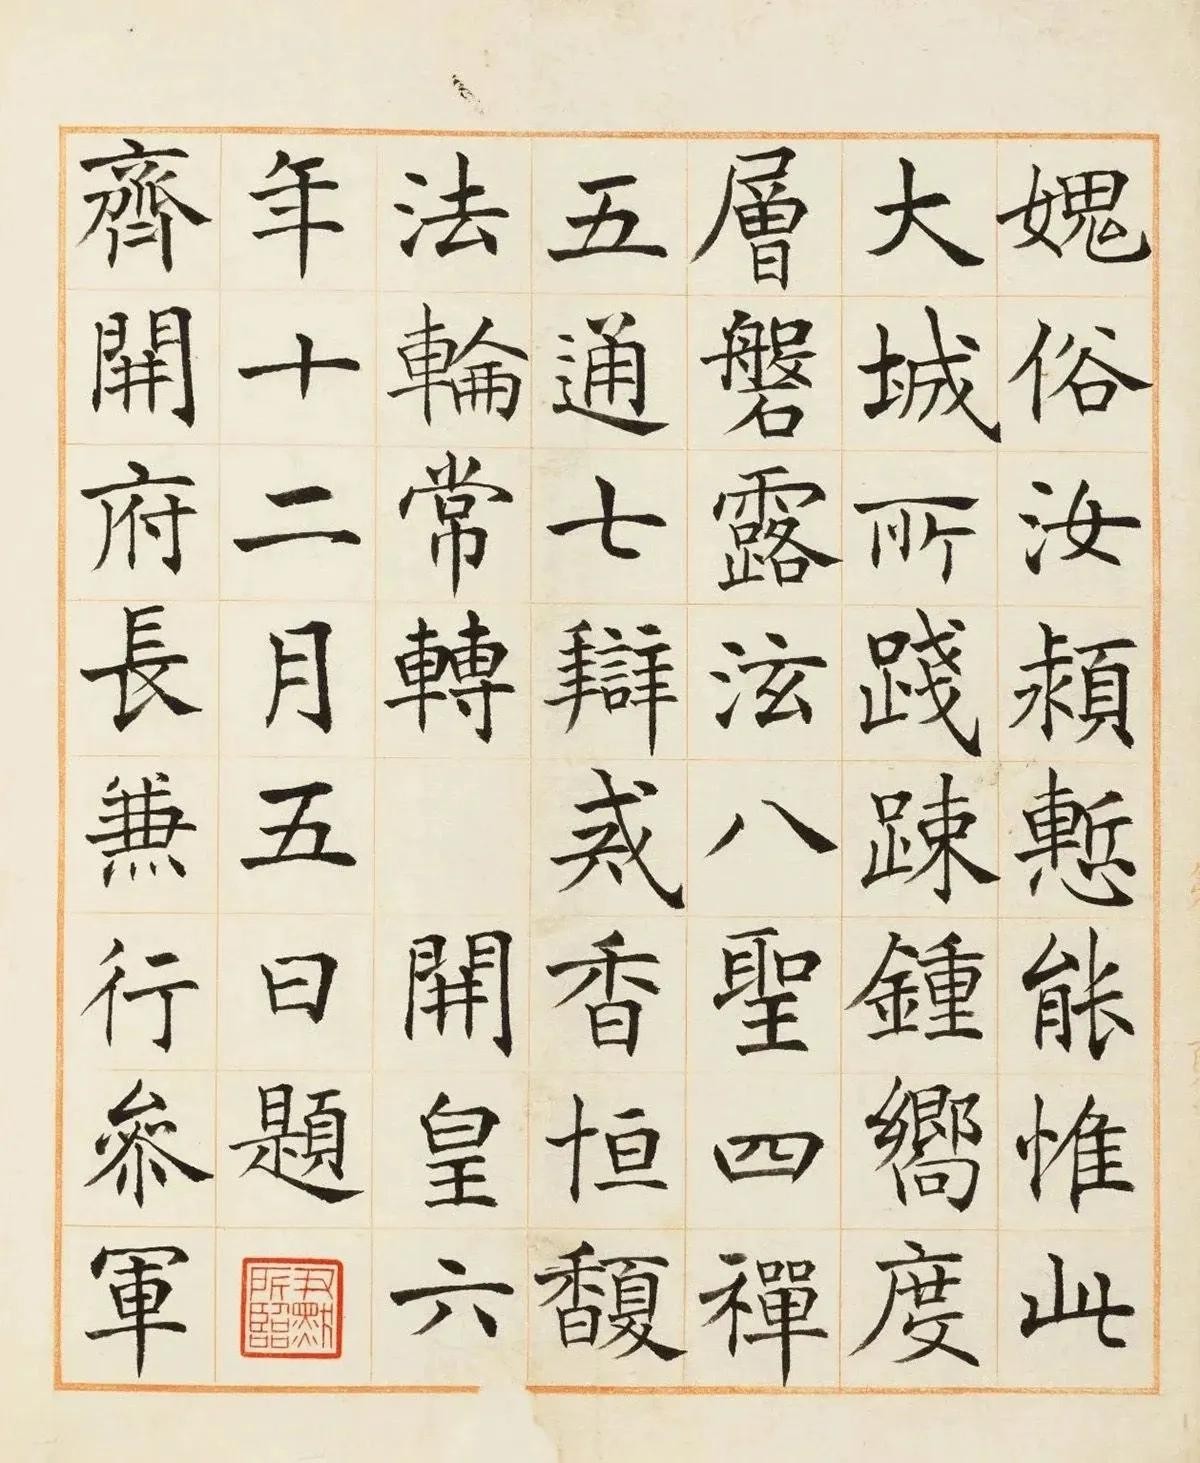 媿俗汝潁慙能惟此
大城所踐踈鍾嚮度
層磐露泫八聖四禪
五通七辯戒香恒馥
法輪常轉　開皇六
年十二月五日題
尹默所臨
齊開府長兼行參軍